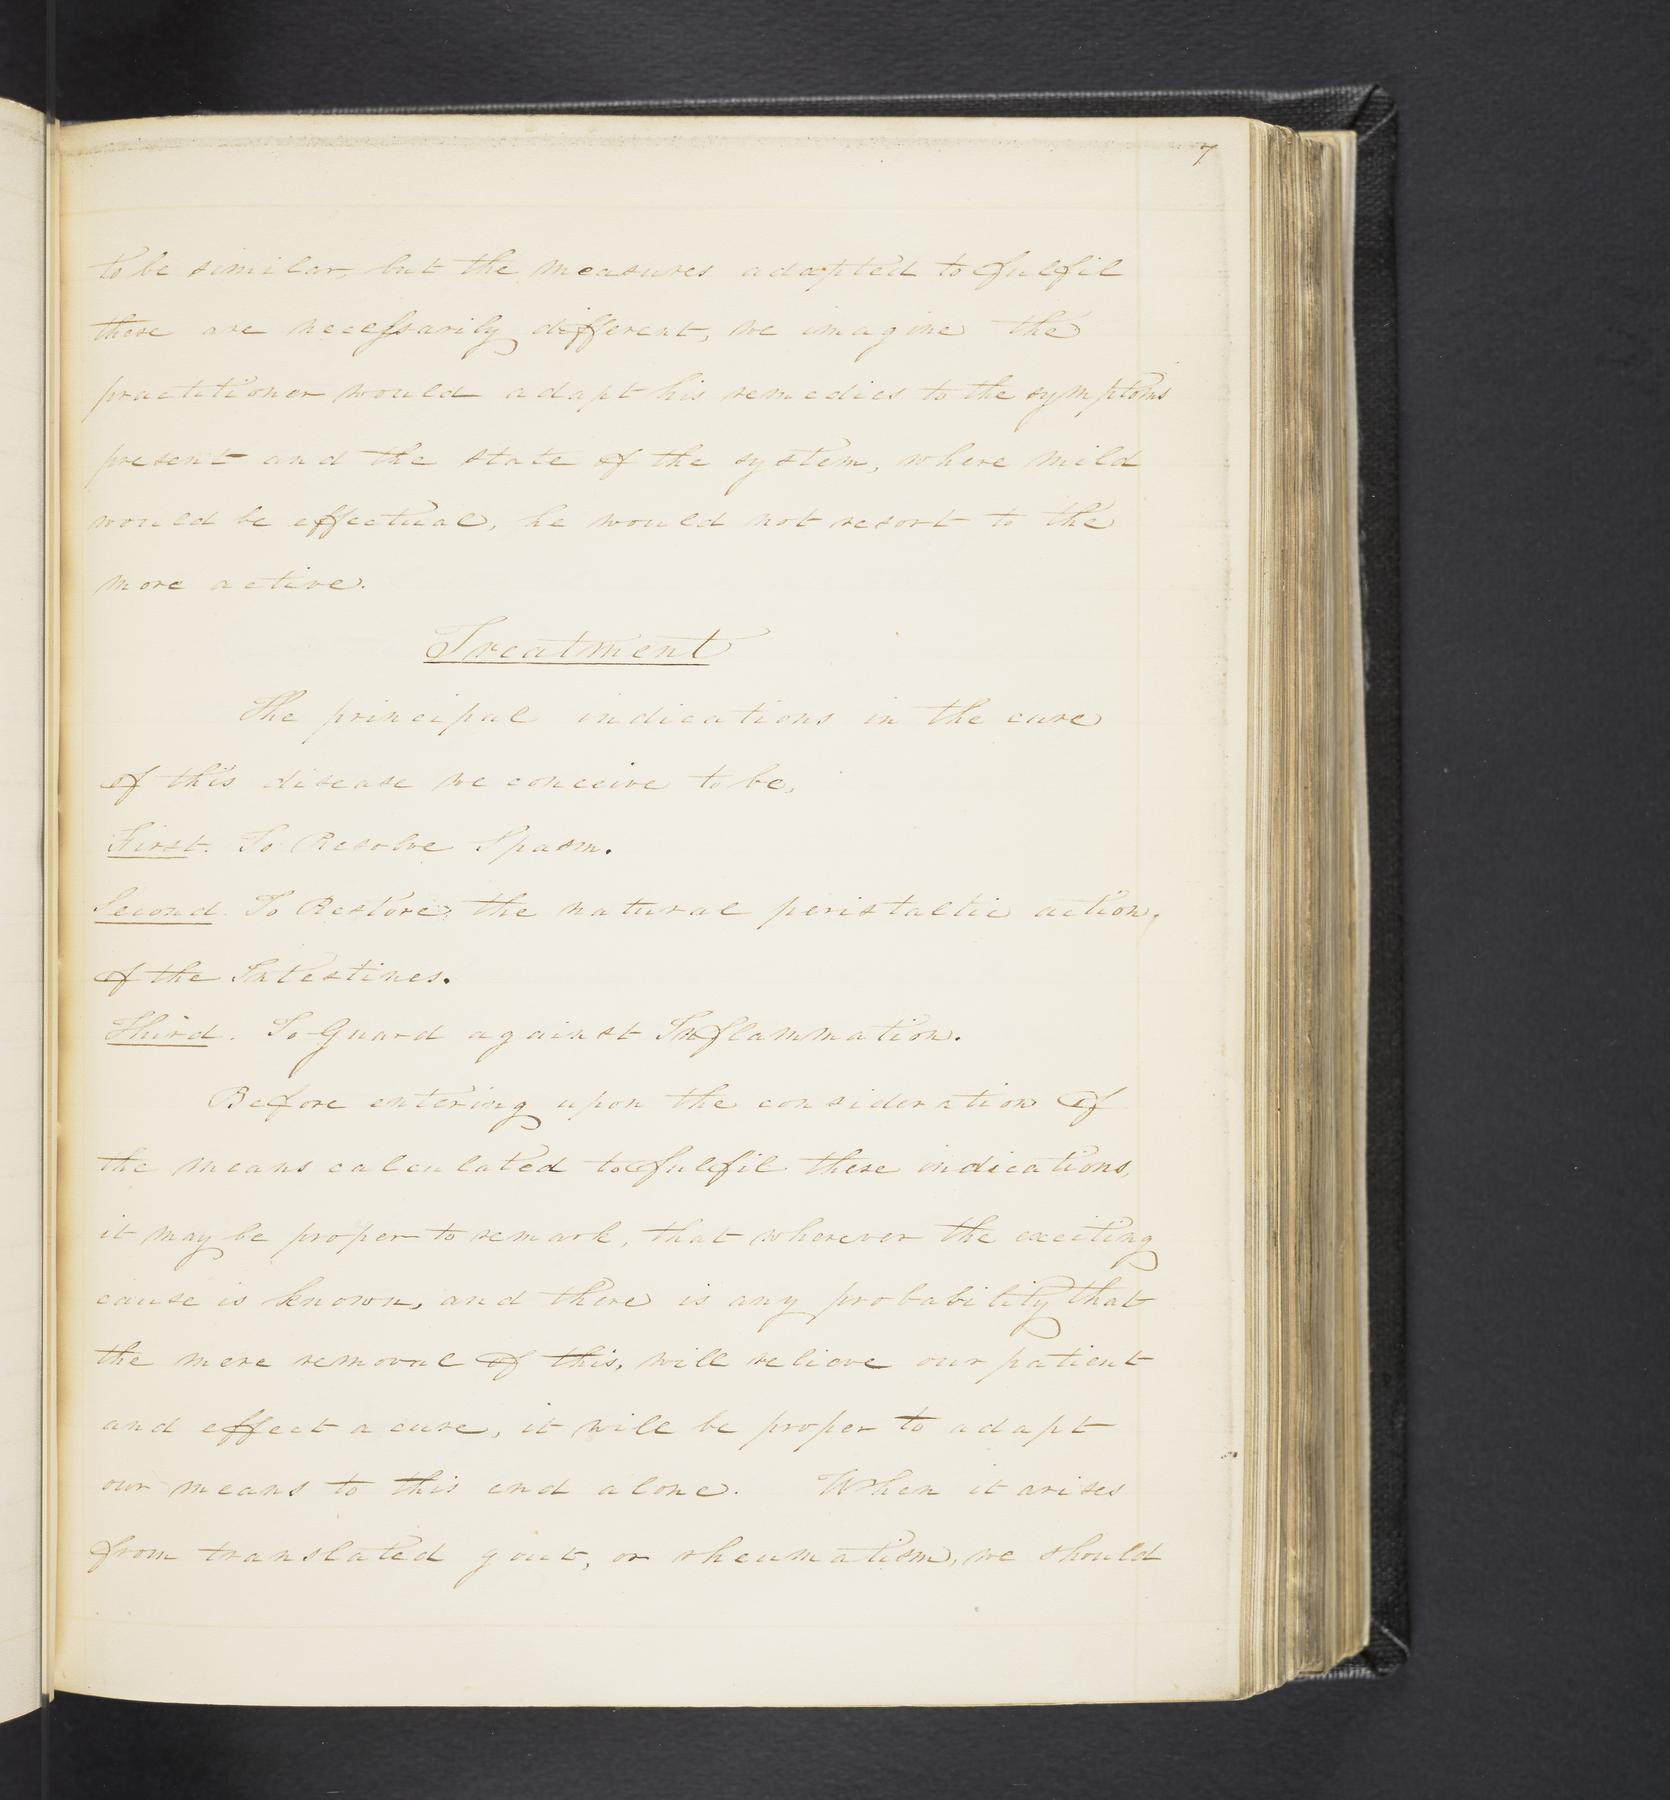 7
to be similar, but the measures adapted to fulfil
these are necessarily different, we imagine the
practitioner would adapt his remedies to the symptoms
present and the state of the system, where mild
would be effectual, he would not resort to the
more active.
Treatment
The principal indications in the cure
of this disease we conceive to be,
First. To Resolve Spasm.
Second. To Restore the natural peristaltic action,
of the Intestines.
Third. To Guard against Inflammation.
Before entering upon the consideration of
the means calculated to fulfil these indications,
it may be proper to remark, that wherever the exciting
cause is known, and there is any probability that
the mere removal of this, will relieve our patient
and effect a cure, it will be proper to adapt
our means to this end alone. When it arises
from translated gout, or rheumatism, we should